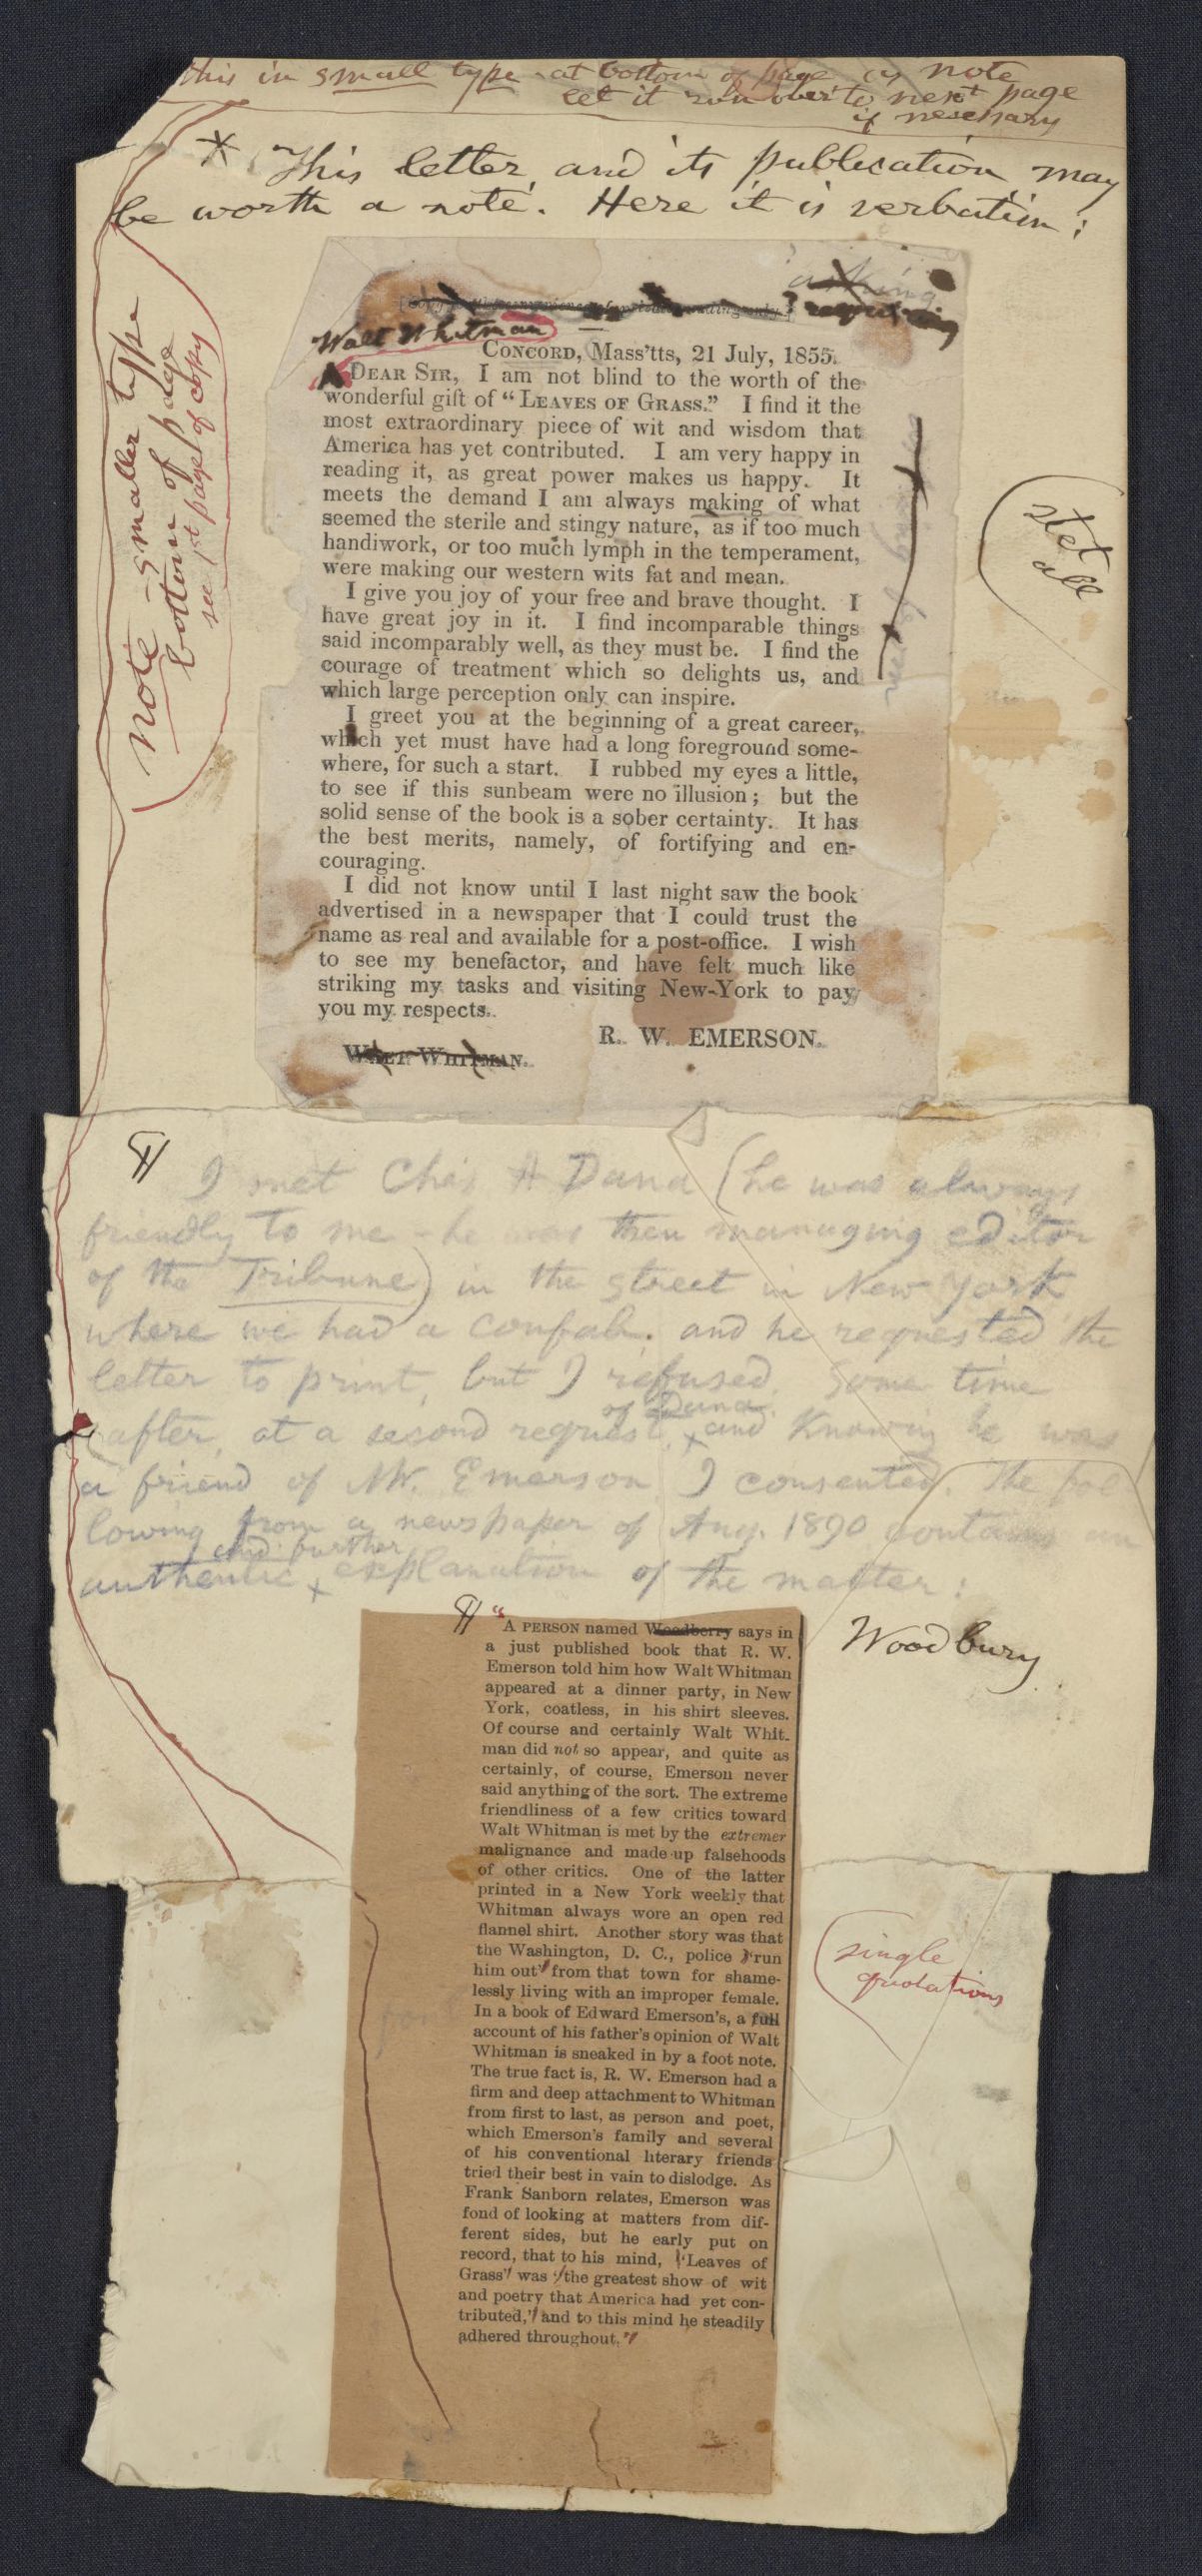 this in small type at bottom of page as note
let it run over to next page
if nesessary
* This letter and its publication may
be worth a note. Here it is verbatim:
note – smaller type
bottom of page
see 1st page of copy
asking
requiring
Walt Whitman
CONCORD, Mass'tts, 21 July, 1855.
DEAR SIR, I am not blind to the worth of the
wonderful gift of "LEAVES OF GRASS." I find it the
most extraordinary piece of wit and wisdom that
America has yet contributed. I am very happy in
reading it, as great power makes us happy. It
meets the demand I am always making of what
seemed the sterile and stingy nature, as if too much
handiwork, or too much lymph in the temperament,
were making our western wits fat and mean.
I give you joy of your free and brave thought. I
have great joy in it. I find incomparable things
said incomparably well, as they must be. I find the
courage of treatment which so delights us, and
which large perception only can inspire.
I greet you at the beginning of a great career,
which yet must have had a long foreground some-
where, for such a start. I rubbed my eyes a little,
to see if this sunbeam were no illusion; but the
solid sense of the book is a sober certainty. It has
the best merits, namely, of fortifying and en-
couraging.
I did not know until I last night saw the book
advertised in a newspaper that I could trust the
name as real and available for a post-office. I wish
to see my benefactor, and have felt much like
striking my tasks and visiting New-York to pay
you my respects.
R. W. EMERSON.
WALT WHITMAN.
stet
all
¶ I met Chas A Dana (he was always
friendly to me – he was then managing editor
of the Tribune) in the street in New York
where we had a confab. and he requested the
letter to print, but I refused. Some time
of Dana
after, at a second request, and knowing he was
a friend of Mr. Emerson I consented. The fol
lowing from a newspaper of Aug. 1890 contains an
and further
authentic explanation of the matter:
¶ "A PERSON named Woodberry says in
Woodbury
a just published book that R. W.
Emerson told him how Walt Whitman
appeared at a dinner party, in New
York, coatless, in his shirt sleeves.
Of course and certainly Walt Whit-
man did not so appear, and quite as
certainly, of course, Emerson never
said anything of the sort. The extreme
friendliness of a few critics toward
Walt Whitman is met by the extremer
malignance and made-up falsehoods
of other critics. One of the latter
printed in a New York weekly that
Whitman always wore an open red
flannel shirt. Another story was that
the Washington, D. C., police 'run
him out' from that town for shame-
lessly living with an improper female.
In a book of Edward Emerson's, a full
account of his father's opinion of Walt
Whitman is sneaked in by a foot note.
The true fact is, R. W. Emerson had a
firm and deep attachment to Whitman
from first to last, as person and poet,
which Emerson's family and several
of his conventional literary friends
tried their best in vain to dislodge. As
Frank Sanborn relates, Emerson was
fond of looking at matters from dif-
ferent sides, but he early put on
record, that to his mind, 'Leaves of
Grass' was 'the greatest show of wit
and poetry that America had yet con-
tributed,' and to this mind he steadily
adhered throughout."
single
quotations